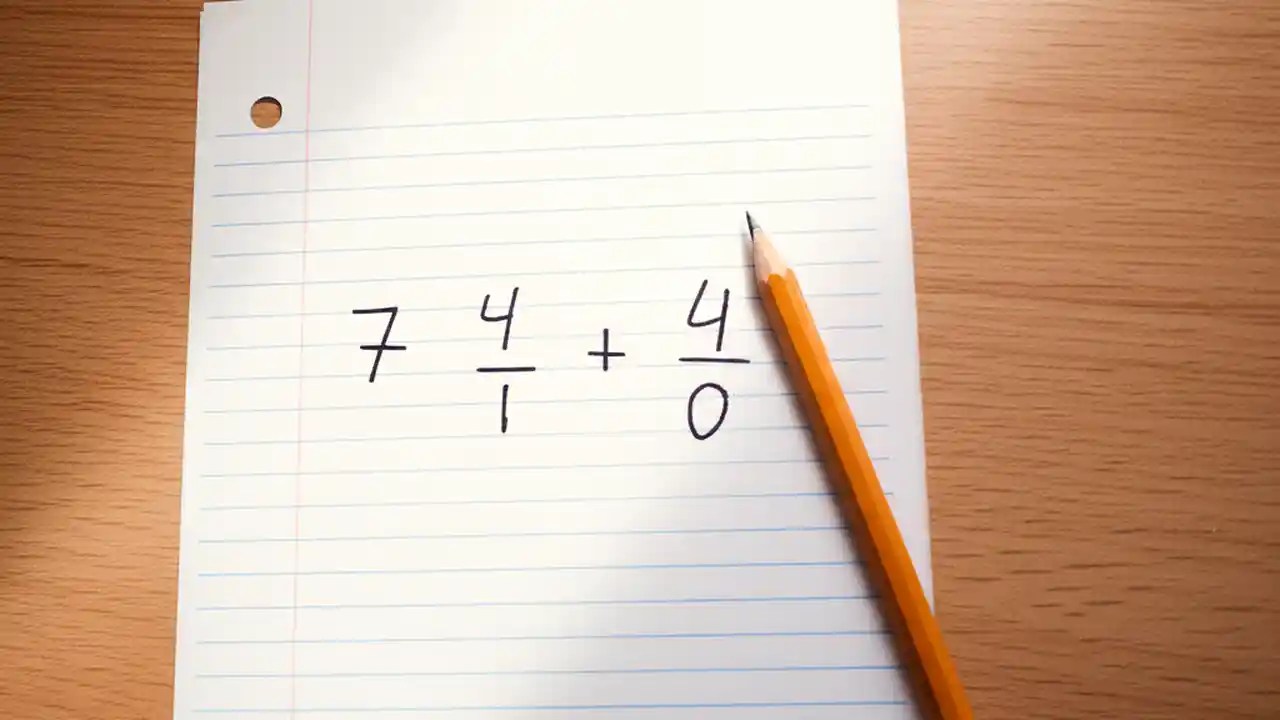 7 4/1 + 4/0